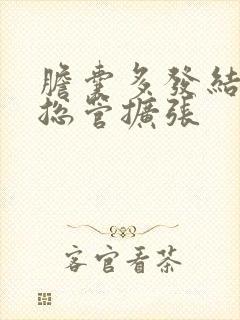 膽囊多發結
總管擴張
客官看茶